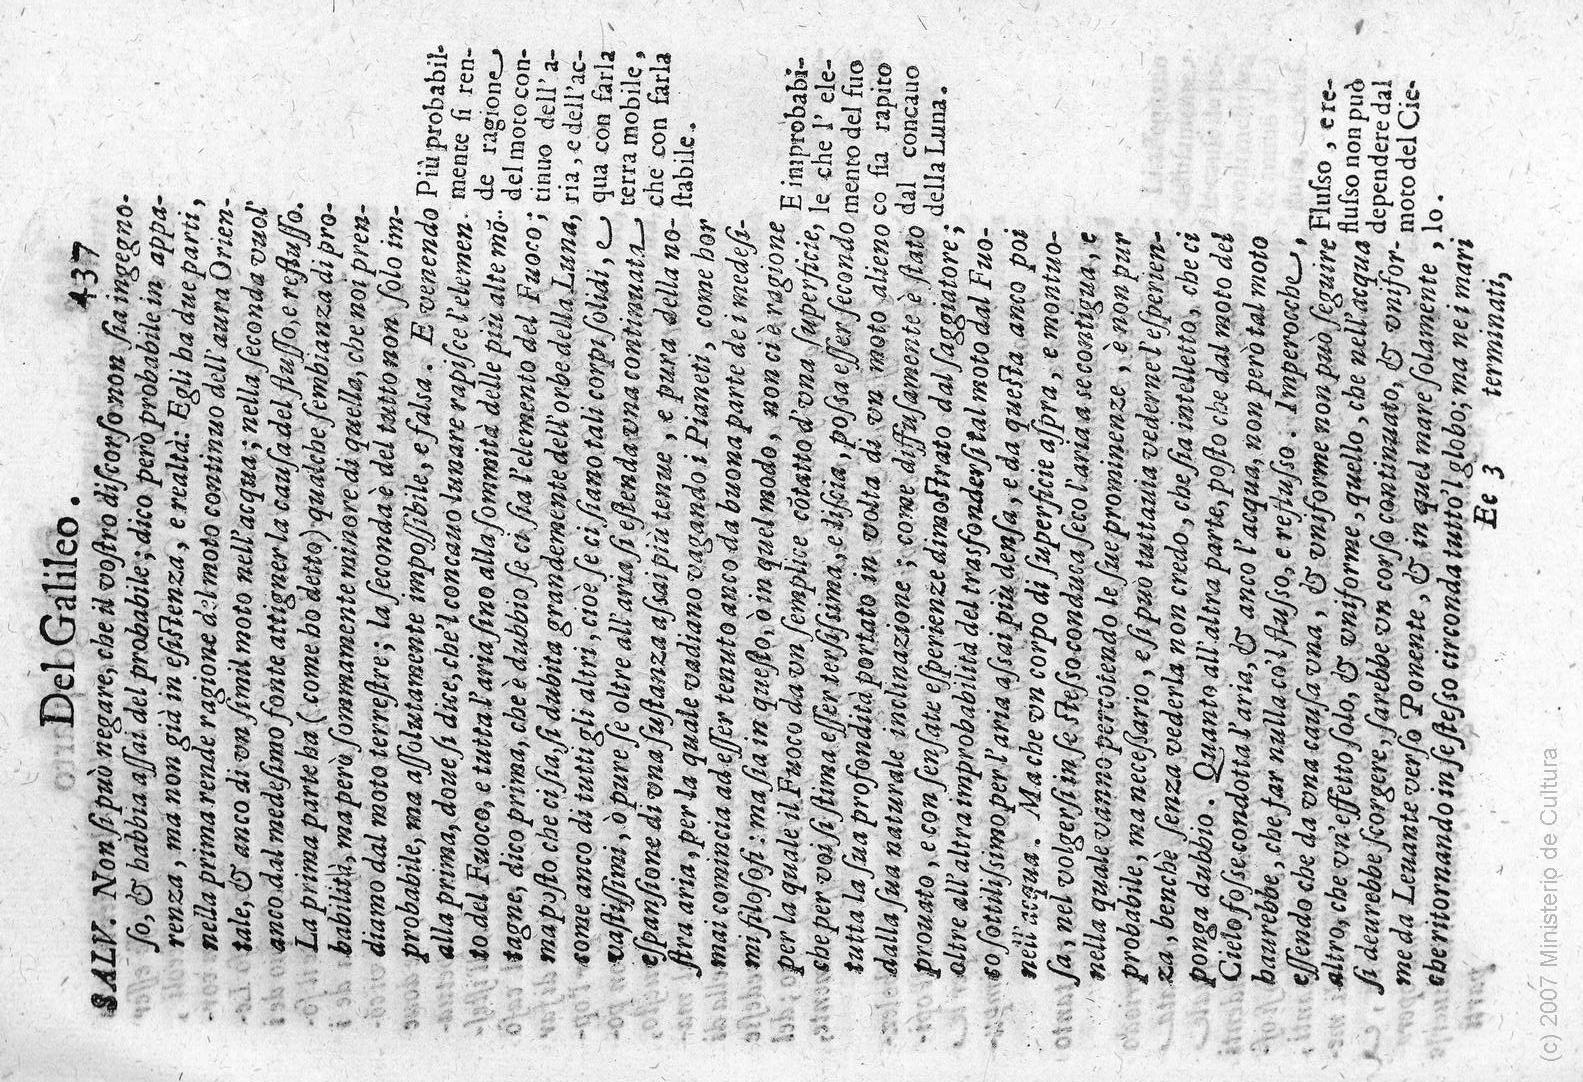 Del Galileo. 437
SALV. Non si può negare, che il vostro discorso non sia ingegno-
so, & habbia assai del probabile; dico però probabile in appa-
renza, ma non già in esistenza, e realtà: Egli ha due parti,
nella prima rende ragione del moto continuo dell'aura Orien-
tale, & anco di vn simil moto nell'acqua; nella seconda vuol'
anco dal medesimo fonte attigner la causa del flusso, e reflusso.
La prima parte ha (come ho detto) qualche sembianza di pro-
babilità, ma però sommamente minore di quella, che noi pren-
diamo dal moto terrestre; la seconda è del tutto non solo im-
probabile, ma assolutamente impossibile, e falsa. E venendo
alla prima, doue si dice, che'l concauo lunare rapisce l'elemen-
to del Fuoco, e tutta l'aria sino alla sommità delle più alte mō-
tagne, dico prima, che è dubbio se ci sia l'elemento del Fuoco;
ma posto che ci sia, si dubita grandemente dell'orbe della Luna,
come anco di tutti gli altri, cioè se ci siano tali corpi solidi, e
vastissimi, ò pure se oltre all'aria si estenda vna continuata
espansione di vna sustanza assai più tenue, e pura della no-
stra aria, per la quale vadiano vagando i Pianeti, come hor
mai comincia ad esser tenuto anco da buona parte de i medesi-
mi filosofi: ma sia in questo, ò in quel modo, non ci è ragione
per la quale il Fuoco da vn semplice cōtatto d'vna superficie,
che per voi si stima esser tersissima, e liscia, possa esser secondo
tutta la sua profondità portato in volta di vn moto alieno
dalla sua naturale inclinazione; come diffusamente è stato
prouato, e con sensate esperienze dimostrato dal saggiatore;
oltre all'altra improbabilità del trasfondersi tal moto dal Fuo-
co sottilissimo per l'aria assai più densa, e da questa anco poi
nell'acqua. Ma che vn corpo di superficie aspra, e montuo-
sa, nel volgersi in se stesso conduca seco l'aria a se contigua, e
nella quale vanno percotendo le sue prominenze, è non pur
probabile, ma necessario, e si può tuttauia vederne l'esperien-
za, benchè senza vederla non credo, che sia intelletto, che ci
ponga dubbio. Quanto all'altra parte, posto che dal moto del
Cielo fosse condotta l'aria, & anco l'acqua, non però tal moto
haurebbe, che far nulla co'l flusso, e reflusso. Imperoche,
essendo che da vna causa vna, & vniforme non può seguire
altro, che vn'effetto solo, & vniforme, quello, che nell'acqua
si deurebbe scorgere, sarebbe vn corso continuato, & vnifor-
me da Leuante verso Ponente, & in quel mare solamente,
che ritornando in se stesso circonda tutto'l globo; ma ne i mari
Ee 3 terminati,
Più probabil-
mente si ren-
de ragione
del moto con-
tinuo dell'a-
ria, e dell'ac-
qua con farla
terra mobile,
che con farla
stabile.
E improbabi-
le che l'ele-
mento del fuo
co sia rapito
dal concauo
della Luna.
Flusso, e re-
flusso non può
dependere dal
moto del Cie-
lo.
(c) 2007 Ministerio de Cultura